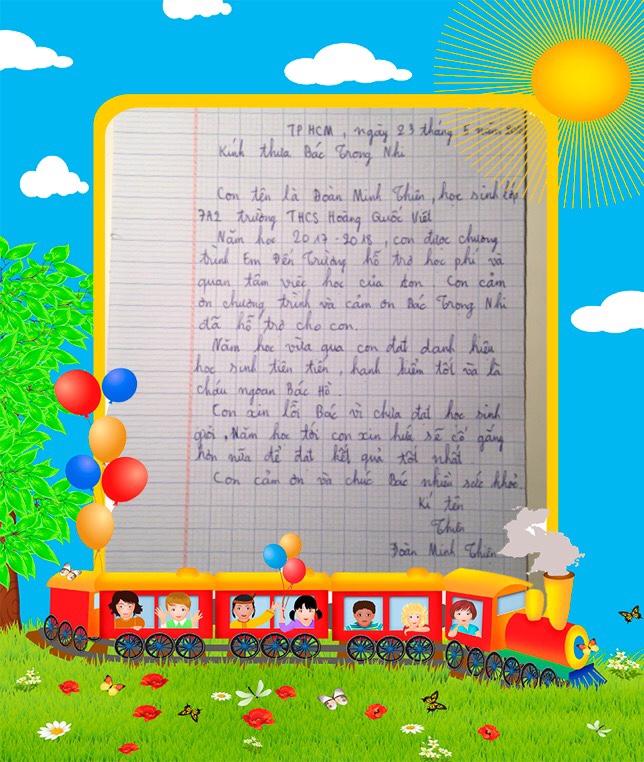 TP HCM, ngày 23 tháng 5 năm
Kính thưa Bác Trọng Nhi
Con tên là Đoàn Minh Thiên, học sinh lớp
7A2 trường THCS Hoàng Quốc Việt
Năm học 2017-2018, con được chương
trình Em Đến Trường hỗ trợ học phí và
quan tâm việc học của con. Con cảm
ơn chương trình và cảm ơn Bác Trọng Nhi
đã hỗ trợ cho con.
Năm học vừa qua con đạt danh hiệu
học sinh tiên tiến, hạnh kiểm tốt và là
cháu ngoan Bác Hồ.
Con xin lỗi Bác vì chưa đạt học sinh
giỏi, Năm học tới con xin hứa sẽ cố gắng
hơn nữa để đạt kết quả tốt nhất
Con cảm ơn và chúc Bác nhiều sức khỏe.
Kí tên
Thiên
Đoàn Minh Thiên